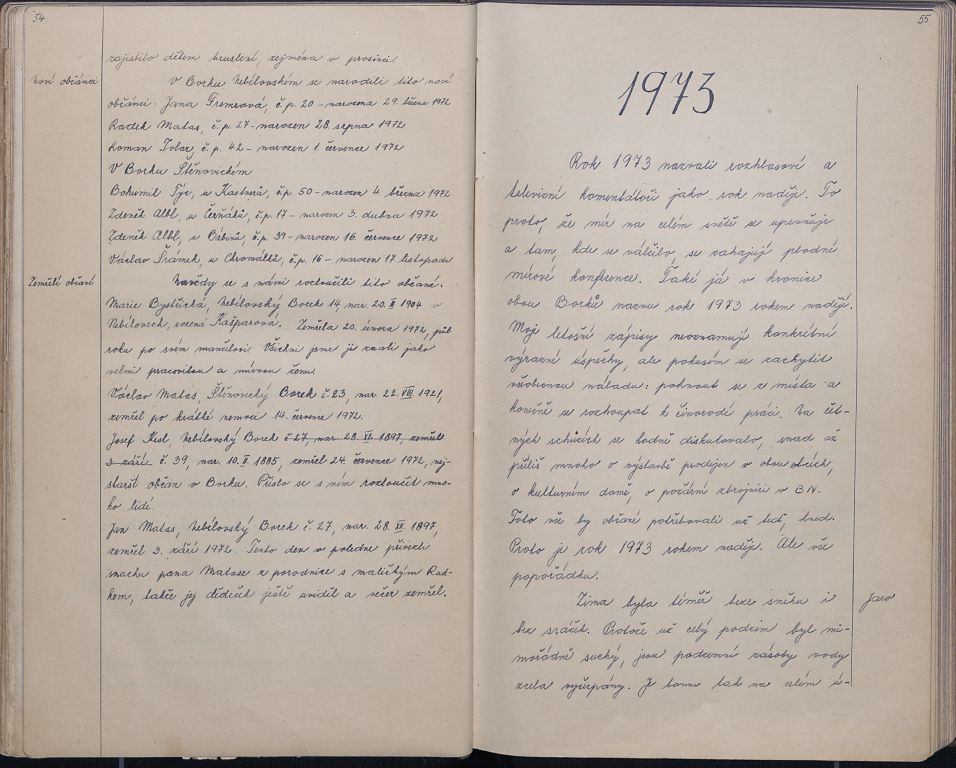 54
zajistilo dětem bruslení, zejména v prosinci.
Noví občánci
V Borku Nebílovském se narodili tito noví
občánci: Jana Fremrová, č.p. 20 - narozena 29. března 1972
Radek Matas, č.p. 27 - narozen 28. srpna 1972
Roman Tolar, č.p. 42 - narozen 1. července 1972
V Borku Štěnovickém
Bohumil Týc, u Kastnerů, č.p. 50 - narozen 4. března 1972
Zdeněk Albl, u Čerňáků, č.p. 17 - narozen 3. dubna 1972
Zdeněk Albl, u Bábinů, č.p. 39 - narozen 16. července 1972
Václav Šrámek, u Chromáků, č.p. 16 - narozen 17. listopadu
Zemřelí občané
Navždy se s námi rozloučili tito občané.
Marie Bystřická, Nebílovský Borek 14, nar. 20. X 1904 v
Nebílovech, rozená Kašparová. Zemřela 20. února 1972, půl
roku po svém manželovi. Všichni jsme ji znali jako
velmi pracovitou a mírnou ženu.
Václav Matas, Štěnovický Borek č. 23, nar. 22. VIII. 1921,
zemřel po krátké nemoci 14. července 1972.
Josef Kůl, Nebílovský Borek č. 27, nar. 28. VI. 1897, zemřel
3. září č. 39, nar. 10. X. 1885, zemřel 24. července 1972, nej-
starší občan v Borku. Přišlo se s ním rozloučit mno-
ho lidí.
Jan Matas, Nebílovský Borek č. 27, nar. 28. VI. 1897,
zemřel 3. září 1972. Tento den v poledne přivezli
snachu pana Matase z porodnice s maličkým Rad-
kem, takže jej dědeček ještě uviděl a večer zemřel.
55
1973
Rok 1973 nazvali rozhlasoví a
televizní komentátoři jako rok naděje. To
proto, že mír na celém světě se upevňuje
a tam, kde se válčilo, se zahajují plodné
mírové konference. Také já v kronice
obou Borků nazvu rok 1973 rokem naděje.
Moje letošní zápisy neoznamují konkrétní
výrazné úspěchy, ale pokusím se zachytit
všeobecnou náladu: pohnout se z místa a
konečně se rozhoupat k činorodé práci. Na čet-
ných schůzích se hodně diskutovalo, snad až
příliš mnoho o výstavbě prodejen v obou obcích,
o kulturním domě, o požární zbrojnici v B.N.
Toto vše by občané potřebovali už teď, hned.
Proto je rok 1973 rokem naděje. Ale vše
popořádku.
Jaro
Zima byla téměř beze sněhu i
bez srážek. Protože už celý podzim byl mi-
mořádně suchý, jsou podzemní zásoby vody
zcela vyčerpány. Je tomu tak na celém ú-